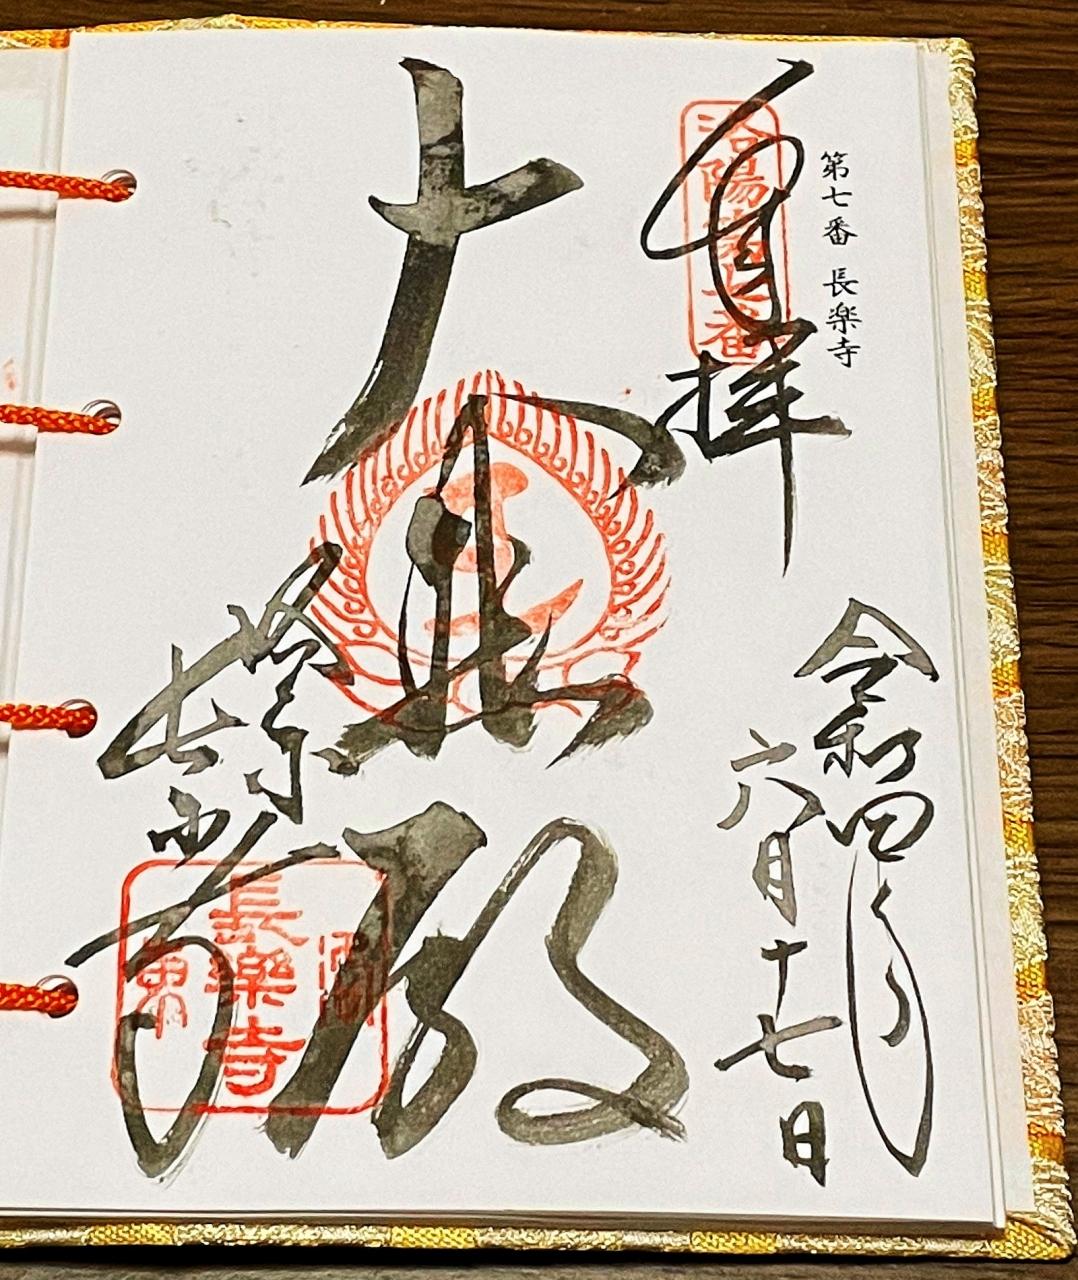 第七番 長楽寺
奉拝
洛陽第七番
令和四年
六月十七日
大悲殿
長楽寺
長楽寺